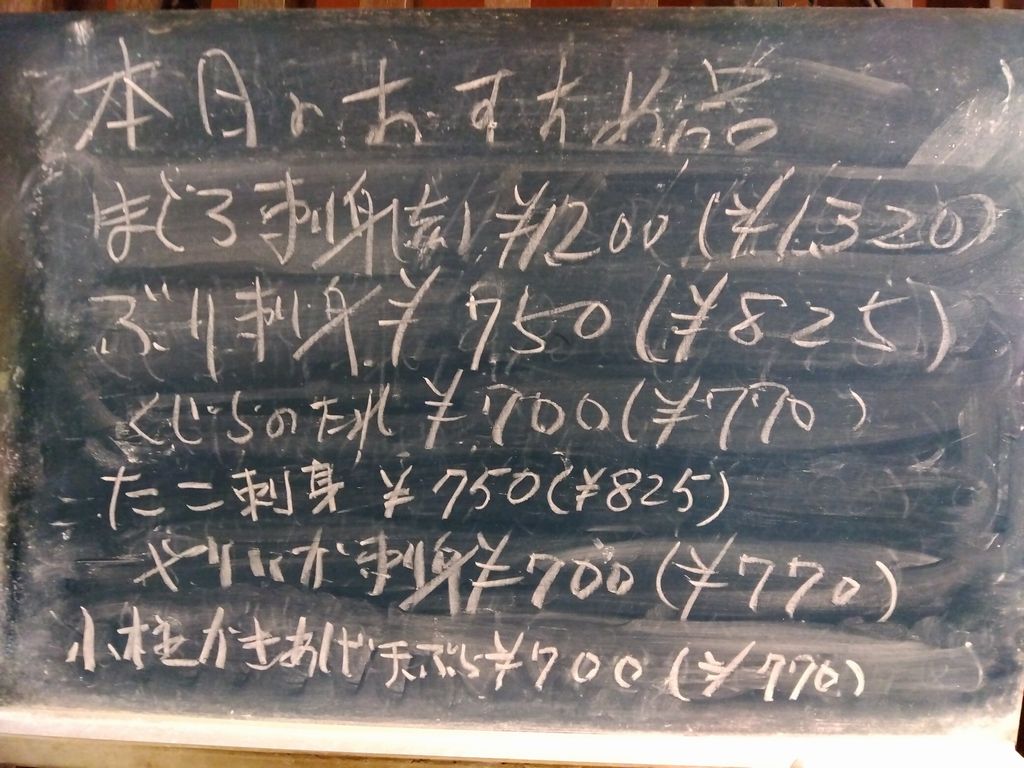 本日のおすすめ品
まぐろ刺身(赤) ¥1200 (¥1,320)
ぶり刺身 ¥750 (¥825)
くじらのたれ ¥700 (¥770)
たこ刺身 ¥750 (¥825)
やりいか刺身 ¥700 (¥770)
小柱かきあげ天ぷら ¥700 (¥770)